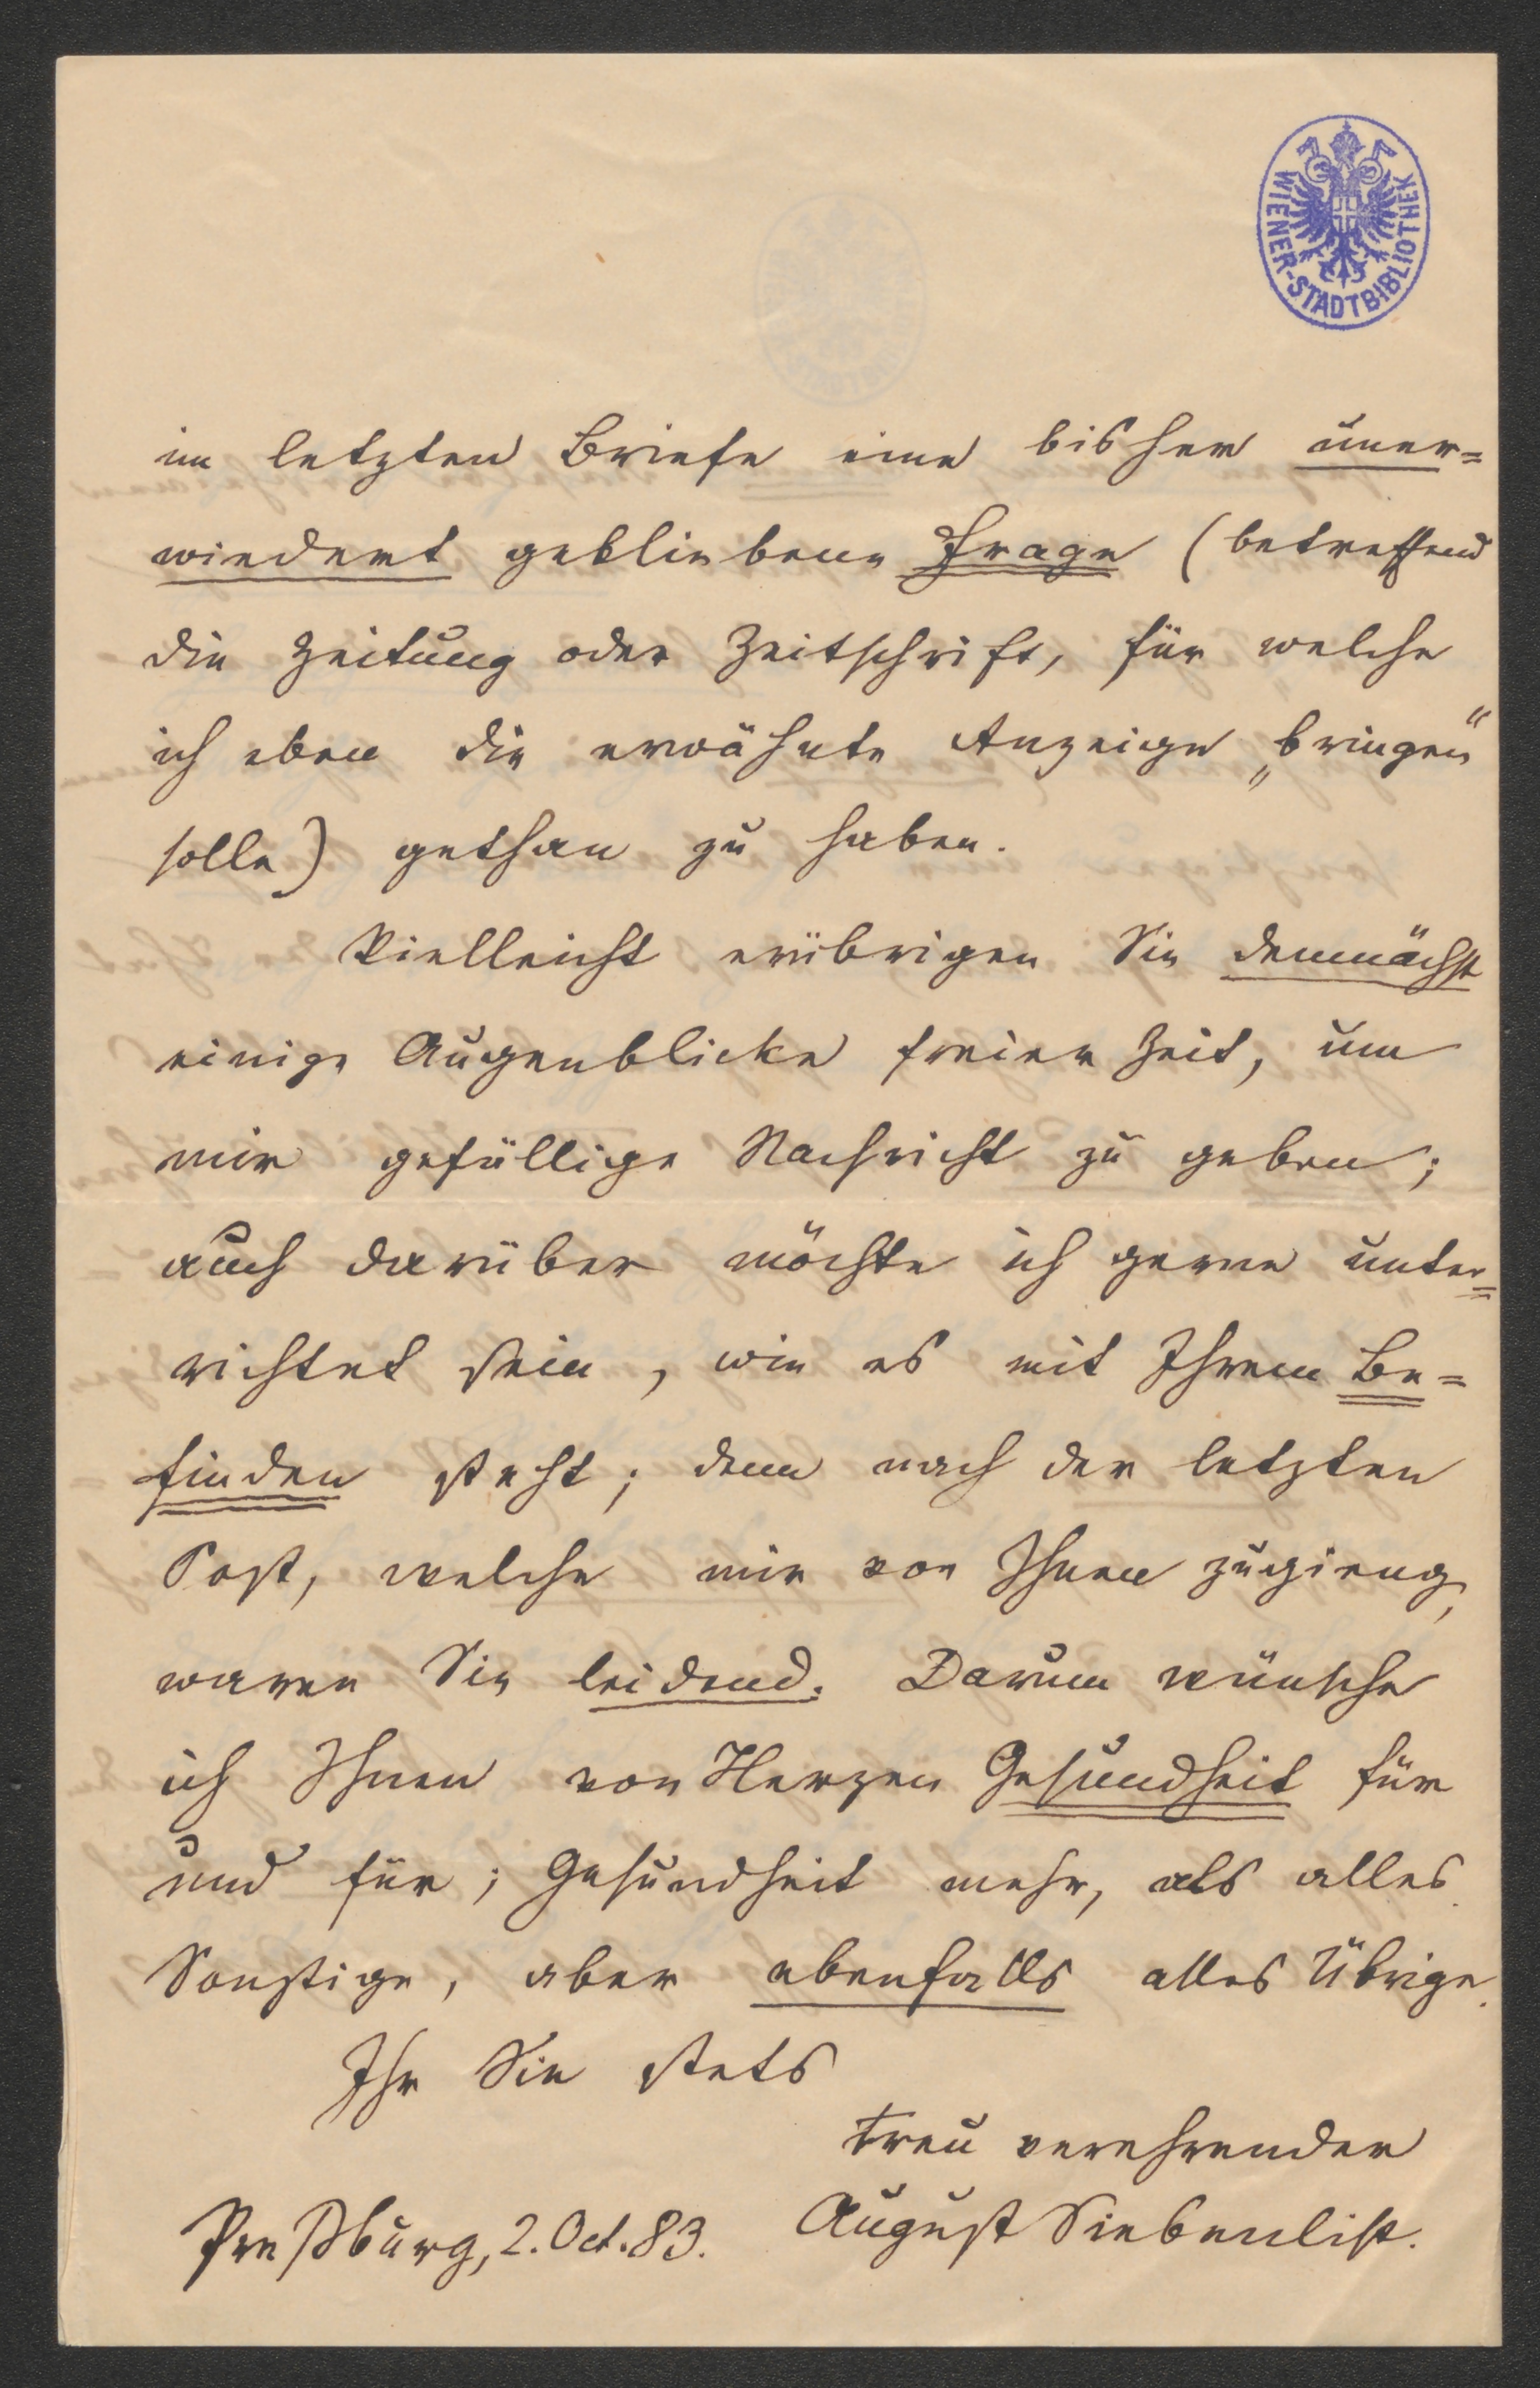 WIENER-STADTBIBLIOTHEK
im letzten Briefe eine bisher uner=
wiedert gebliebene Frage (betreffend
die Zeitung oder Zeitschrift, für welche
ich eben die erwähnte Anzeige „bringen“
solle) gethan zu haben.
Vielleicht erübrigen Sie demnächst
einige Augenblicke freier Zeit, um
mir gefällige Nachricht zu geben;
auch darüber möchte ich gerne unter=
richtet sein, wie es mit Ihrem Be=
finden steht; denn nach der letzten
Post, welche mir von Ihnen zugieng,
waren Sie leidend. Darum wünsche
ich Ihnen von Herzen Gesundheit für
und für; Gesundheit mehr, als alles
Sonstige, aber ebenfalls alles Übrige.
Ihr Sie stets
treu verehrender
August Siebenlist.
Preßburg, 2. Oct. 83.